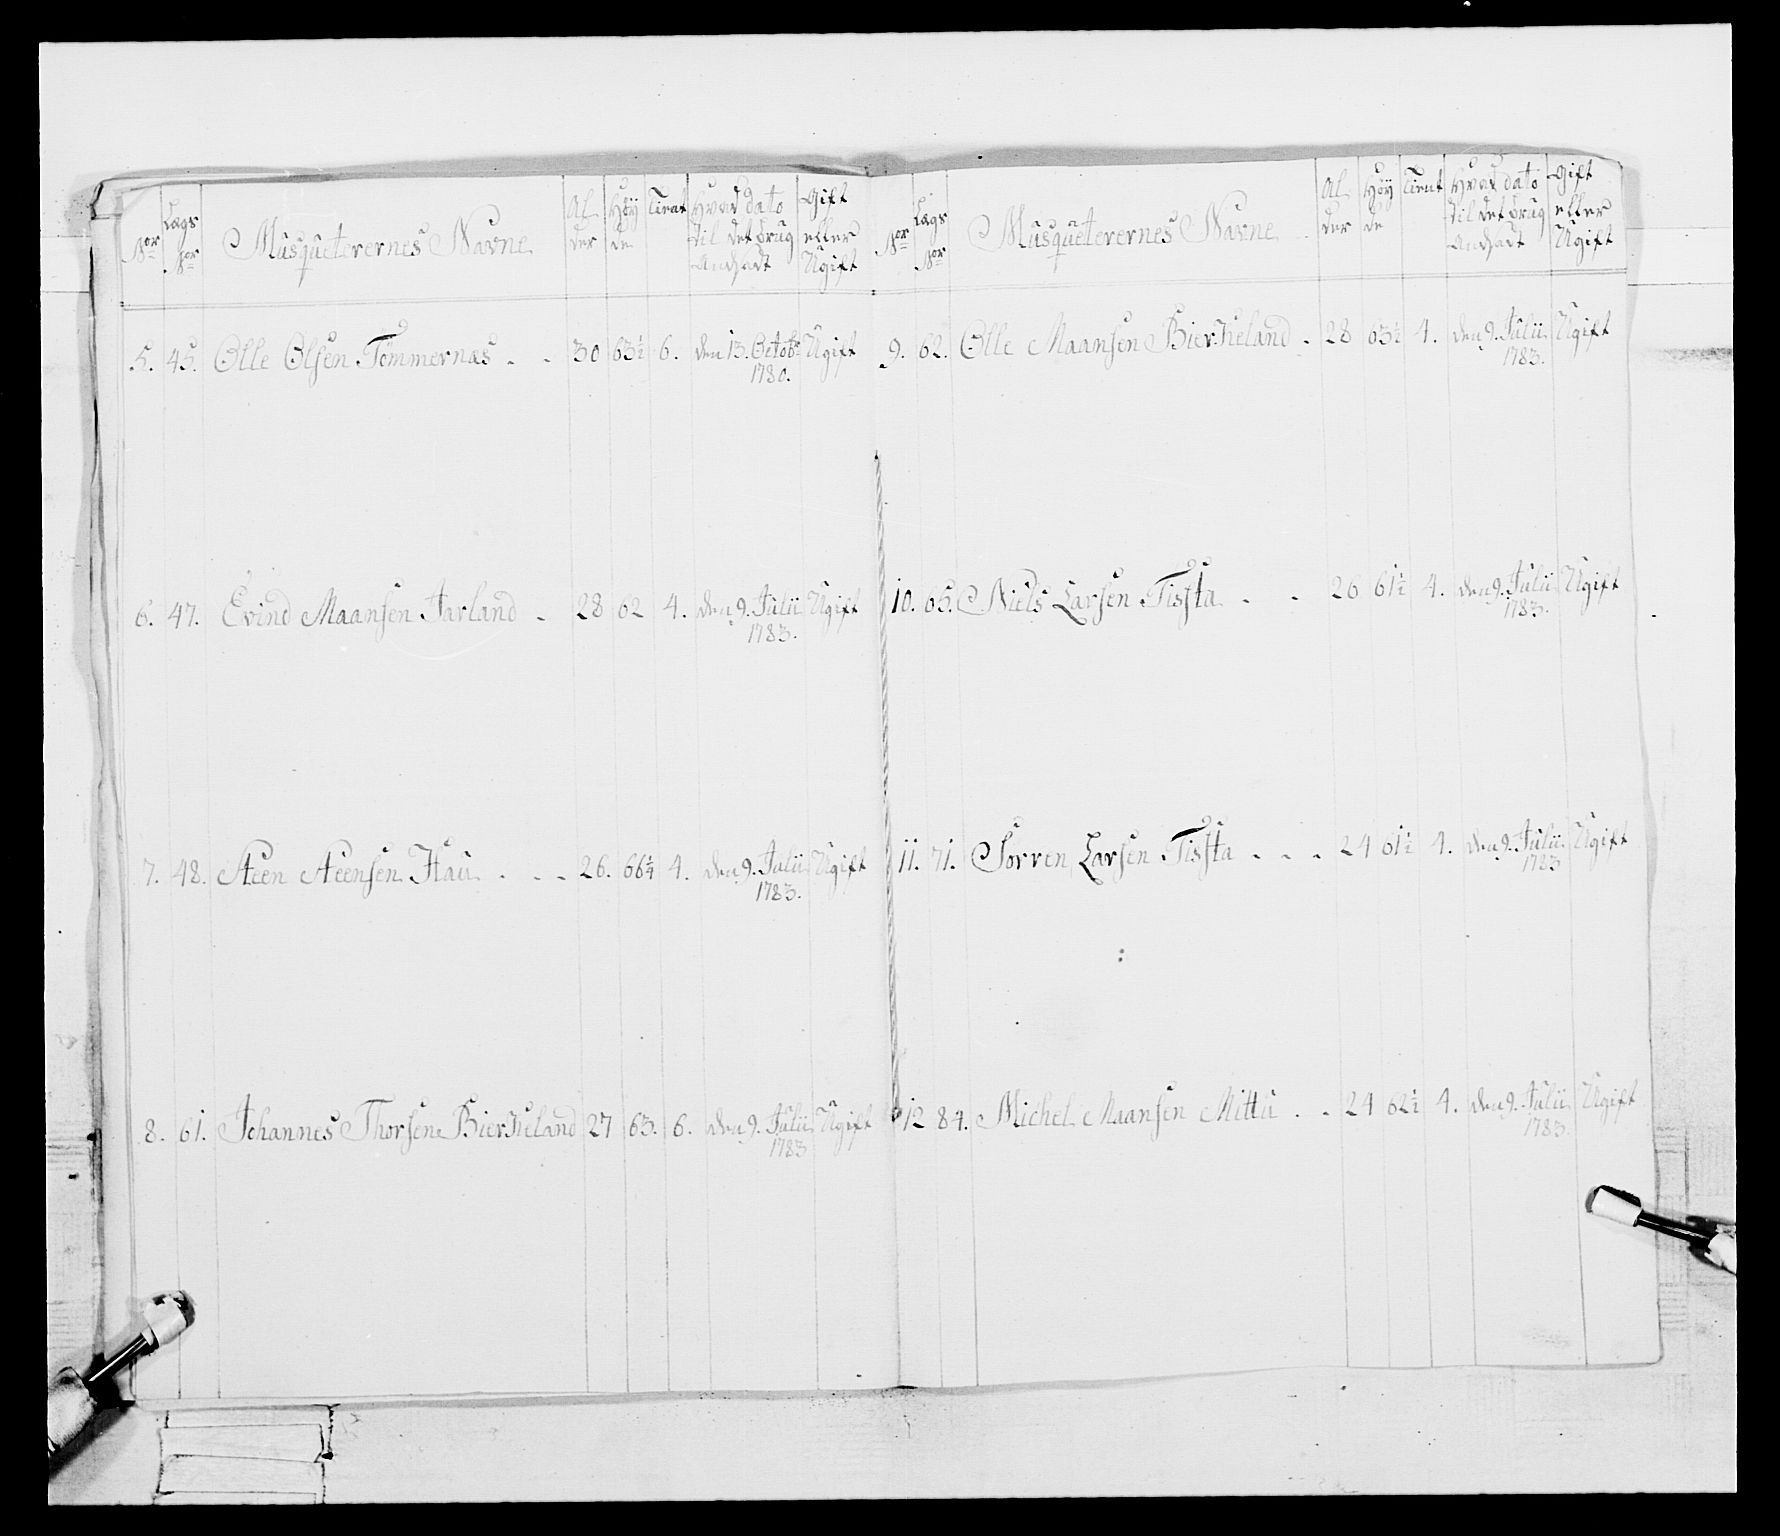 Nor Lægs Nor Musqueterernes Navne Al der Høy de Tient Hvad dato til det brug Andsadt Gift eller Ugift
5. 45. Olle Olsen Tømmernæs . . 30 63½ 6. den 13. Octobr Ugift
1780.
6. 47. Evind Maansen Jarland . 28 62 4. den 9. Julii Ugift
1783.
7. 48. Steen Steensen Hau . . . 26. 66¼ 4. den 9. Julii Ugift
1783.
8. 61. Johannes Thorsen Bierkeland 27 63. 6. den 9. Julii Ugift
1783
Nor Lægs Nor Musqueterernes Navne Al der Høy de Tient Hvad dato til det brug Andsadt Gift eller Ugift
9. 62. Olle Maansen Bierkeland . 28 63½ 4. den 9. Julii Ugift
1783.
10. 65. Niels Larsen Tissta . . 26 61½ 4. den 9. Julii Ugift
1783.
11. 71. Sorren Larsen Tissta . . . 24 61½ 4. den 9. Julii Ugift
1783
12 84. Michel Maansen Mittu . . 24 62½ 4. den 9. Julii Ugift
1783.